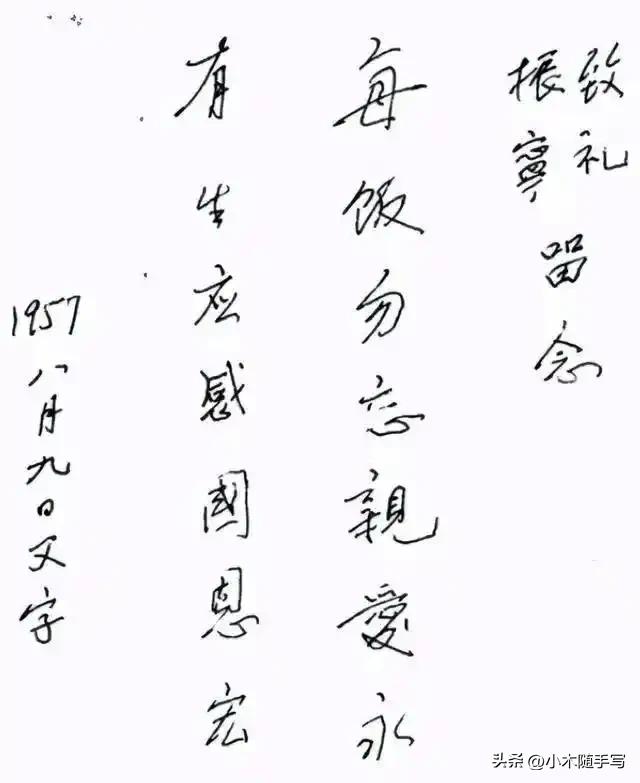 致礼
振寧
留念
每飯勿忘親愛永
有生應感國恩宏
1957八月九日父字
头条 @小木随手写